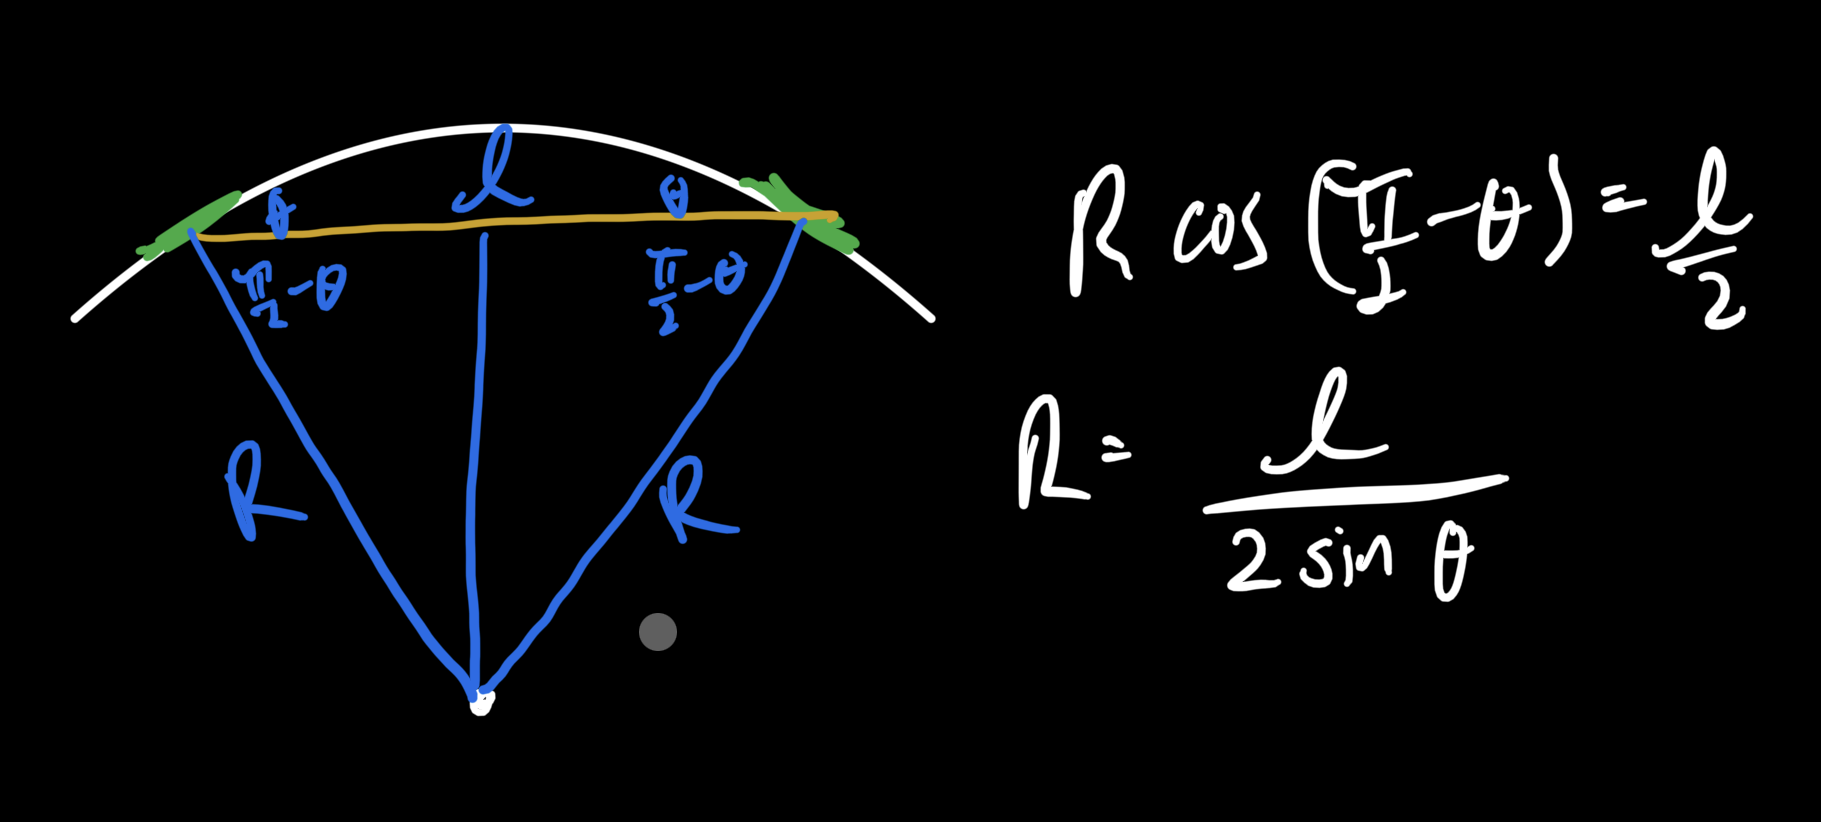 l
θ θ
π/2 - θ π/2 - θ
R R
R cos (π/2 - θ) = l/2
R = l / 2 sin θ